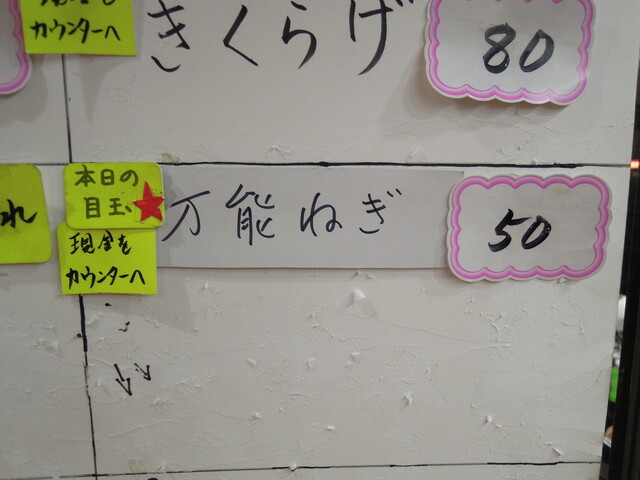 カウンターへ
きくらげ
80
れ
本日の
目玉
万能ねぎ
50
現金を
カウンターへ